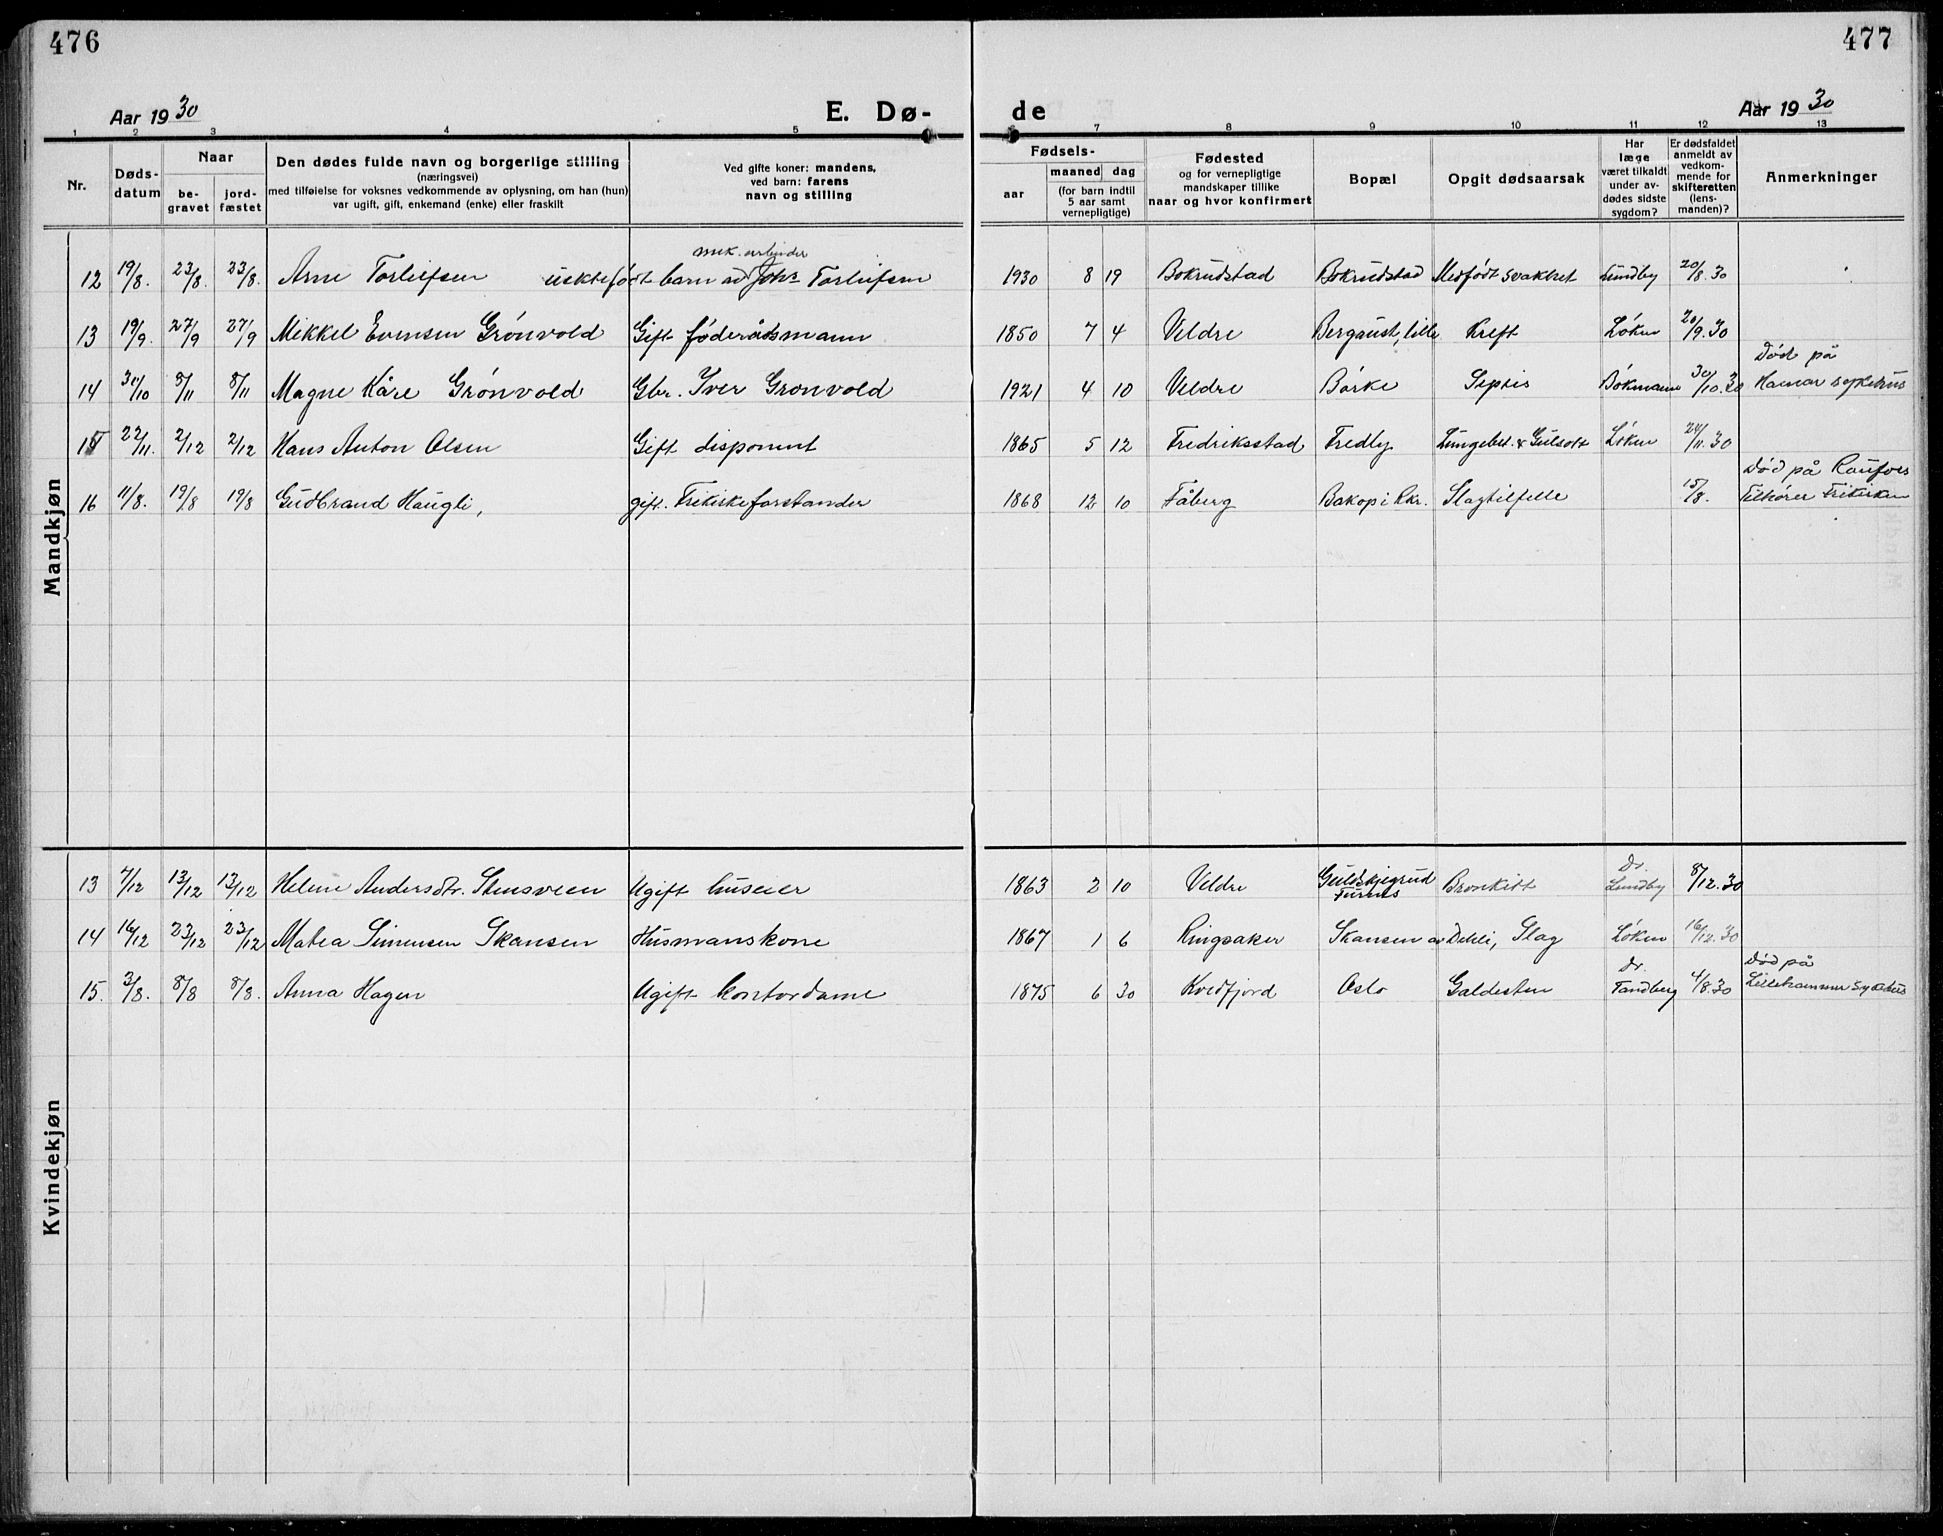 476
477
Aar 1930
E. Dø-
de
Aar 1930
1 2 3 4 5 6 7 8 9 10 11 12 13
Nr.
Døds-
datum
Naar
be-
gravet
jord-
fæstet
Den dødes fulde navn og borgerlige stilling
(næringsvei)
med tilføielse for voksnes vedkommende av oplysning, om han (hun)
var ugift, gift, enkemand (enke) eller fraskilt
Ved gifte koner: mandens,
ved barn: farens
navn og stilling
Fødsels-
aar
maaned dag
(for barn indtil
5 aar samt
vernepligtige)
Fødested
og for vernepligtige
mandskaper tillike
naar og hvor konfirmert
Bopæl
Opgit dødsaarsak
Har
læge
været tilkaldt
under av-
dødes sidste
sygdom?
Er dødsfaldet
anmeldt av
vedkom-
mende for
skifteretten
(lens-
manden)?
Anmerkninger
Mandkjøn
mek. arbeider
12 19/8. 23/8. 23/8. Arne Torleifsen uektefødt barn av Johs Torleifsen 1930 8 19 Bokrudstad Bokrudstad Medfødt svakhet Lundby 20/8.30
13 19/9. 27/9 27/9 Mikkel Evensen Grønvold Gift føderådsmann 1850 7 4 Veldre Bergsust, lille Kreft Løken 20/9.30
Død på
14 30/10 8/11 8/11 Magne Kåre Grønvold Gbr. Iver Grønvold 1921 4 10 Veldre Børke Sepsis Bøkmann 30/10.30 Hamar sykehus
15 22/11. 2/12 2/12 Hans Anton Olsen Gift disponent 1865 5 12 Fredriksstad Fredly Lungebet. & Gulsott Løken 24/11.30
Død på Raufoss
16 11/8. 19/8 19/8 Gudbrand Haugli, gift. Frikirkeforstander 1868 12 10 Fåberg Bakop i Rkr. Slagtilfelle 15/8. Tilhører Frikirken
Kvindekjøn
13 7/12 13/12 13/12 Helene Andersdtr. Stensveen Ugift huseier 1863 2 10 Veldre Guldskjegrud Furnes Bronkitt Dr. Lundby 8/12.30
14 16/12 23/12 23/12 Matea Simensen Skansen Husmanskone 1867 1 6 Ringsaker Skansen av Dehli, Slag Løken 16/12.30
Død på
15. 3/8. 8/8 8/8. Anna Hagen Ugift kontordame 1875 6 30 Kvedfjord Oslo Galdesten Dr. Tandberg 4/8.30 Lillehammer sykehus